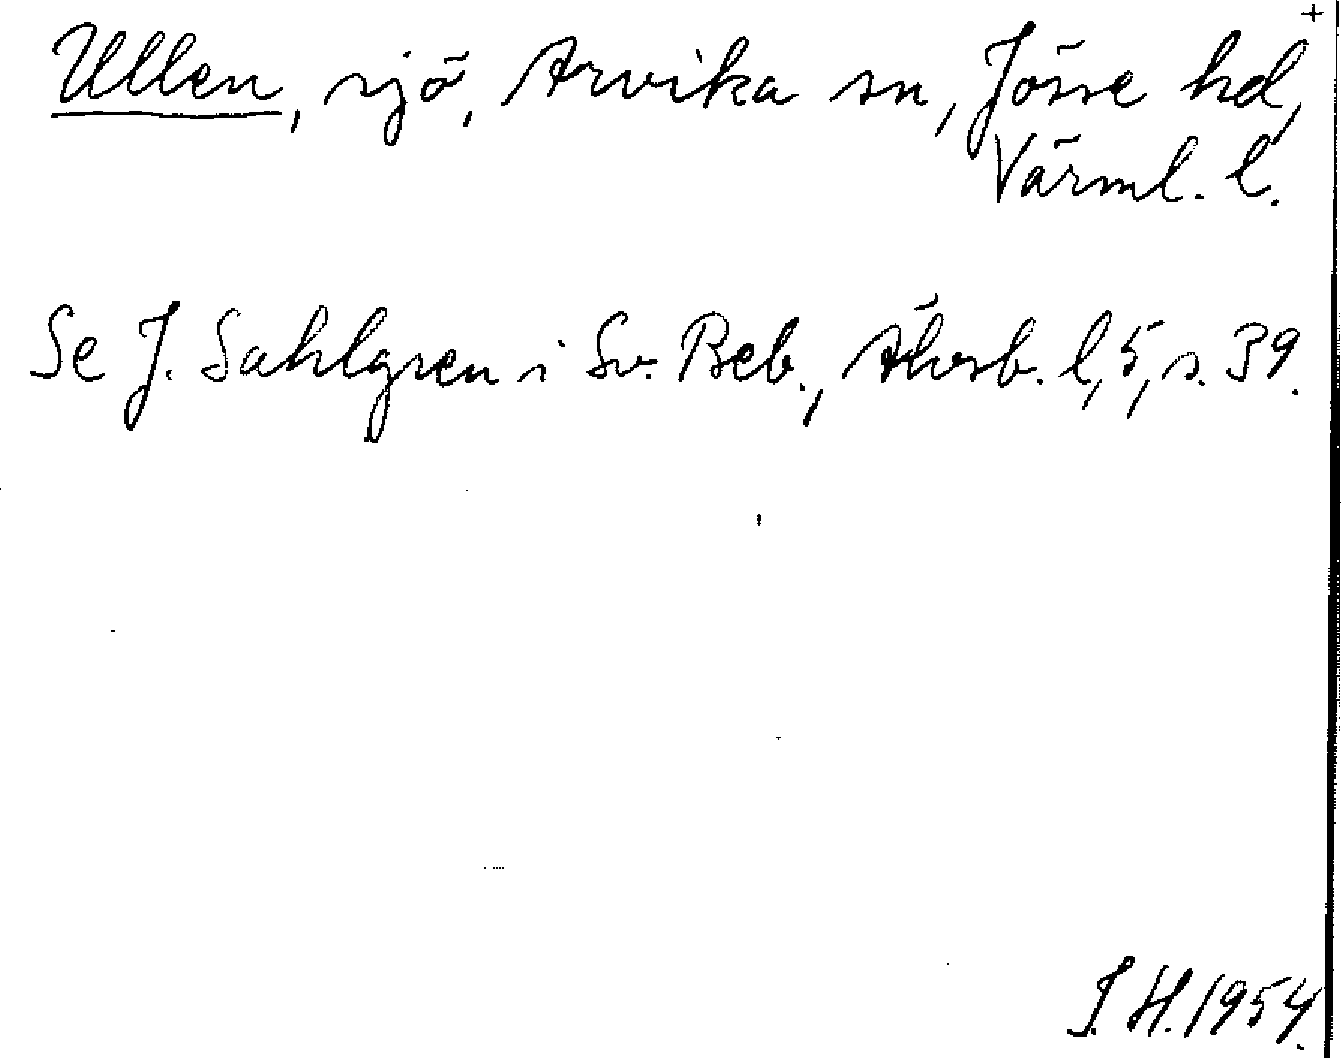 +
Ullen, sjö, Arvika sn, Jösse hd,
Värml. l.
Se J. Sahlgren i Sv. Beb., Älvsb. l, 5, s. 39.
I. H. 1954.